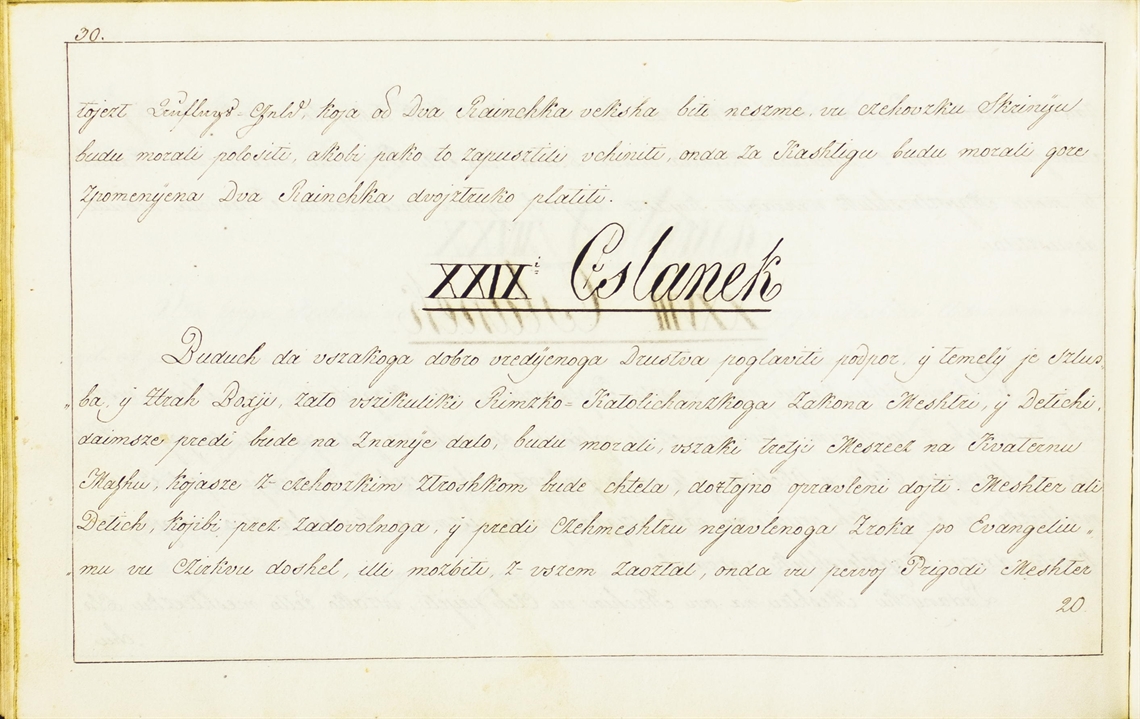 30.
tojezt Auflags-Geld, koja od Dva Rainchka veksha biti neszme, vu czehovzku Skrinyu
budu morali polositi, akobi pako to zapusztili vchiniti, onda za Kashtigu budu morali gore
zpomenyena Dva Rainchka dvojztruko platiti.
XXIX.i Cslanek
Buduch da vszakoga dobro vredyenoga Drustva poglaviti podpor, y temely je Szlus-
"ba, y Ztrah Bosji, zato vszikuliki Rimzko=Katolichanzkoga Zakona Meshtri, y Detichi,
daimsze predi bude na Znanje dalo, budu morali, vszaki tretji Meszecz na Kvaternu
Mashu, kojasze z-czehovzkim Ztroshkom bude chtela, doztojno opravleni dojti. Meshter ali
Detich, kojibi prez zadovolnoga, y predi Czehmeshtru nejavlenoga Zroka po Evangeliu-
"mu vu Czirkvu doshel, illi mozbiti, z-vszem zaoztal, onda vu pervoj Prigodi Meshter
20